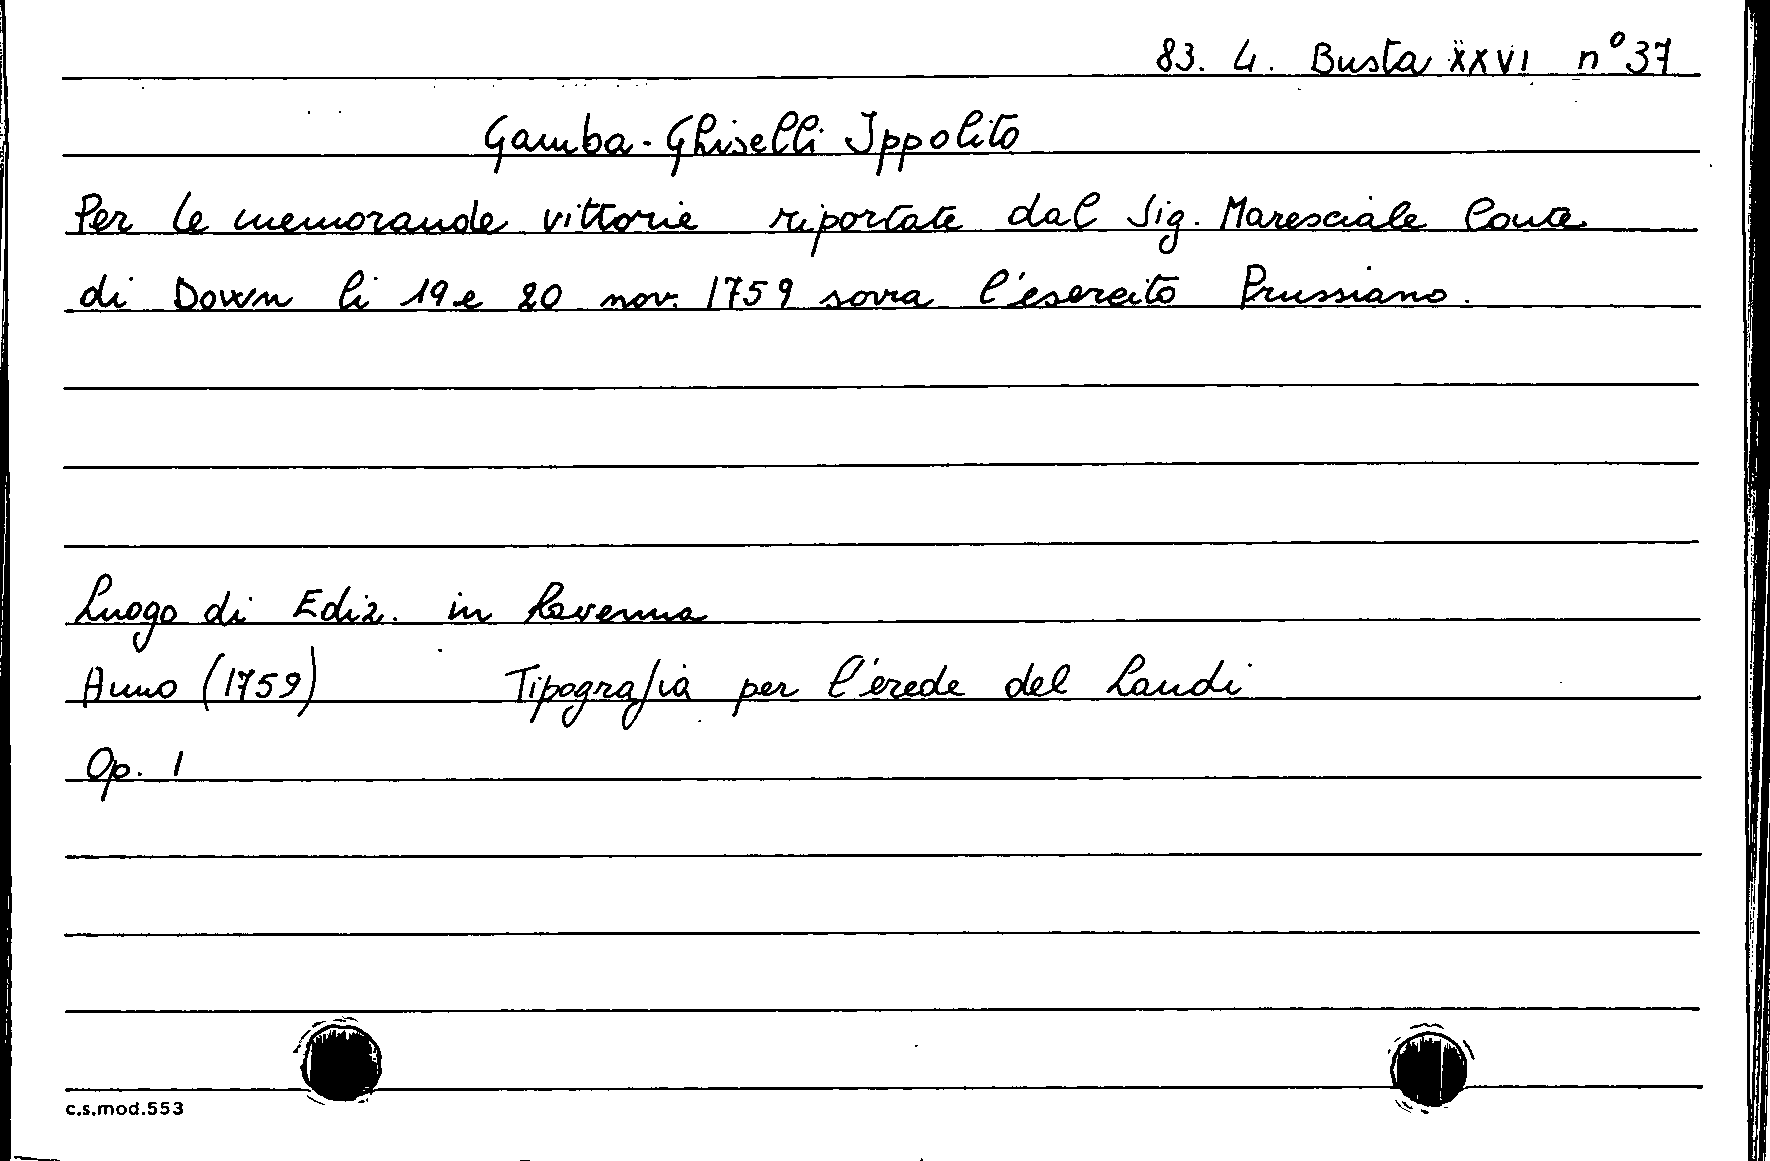 83. 4. Busta XXVI n° 37
Gamba-Ghiselli Ippolito
Per le memorande vittorie riportate dal Sig. Maresciale Conte
di Down li 19 e 20 nov. 1759 sovra l'esercito Prussiano.
Luogo di Ediz. in Ravenna
Anno (1759) Tipografia per l'erede del Landi
Op. 1
c.s.mod.553